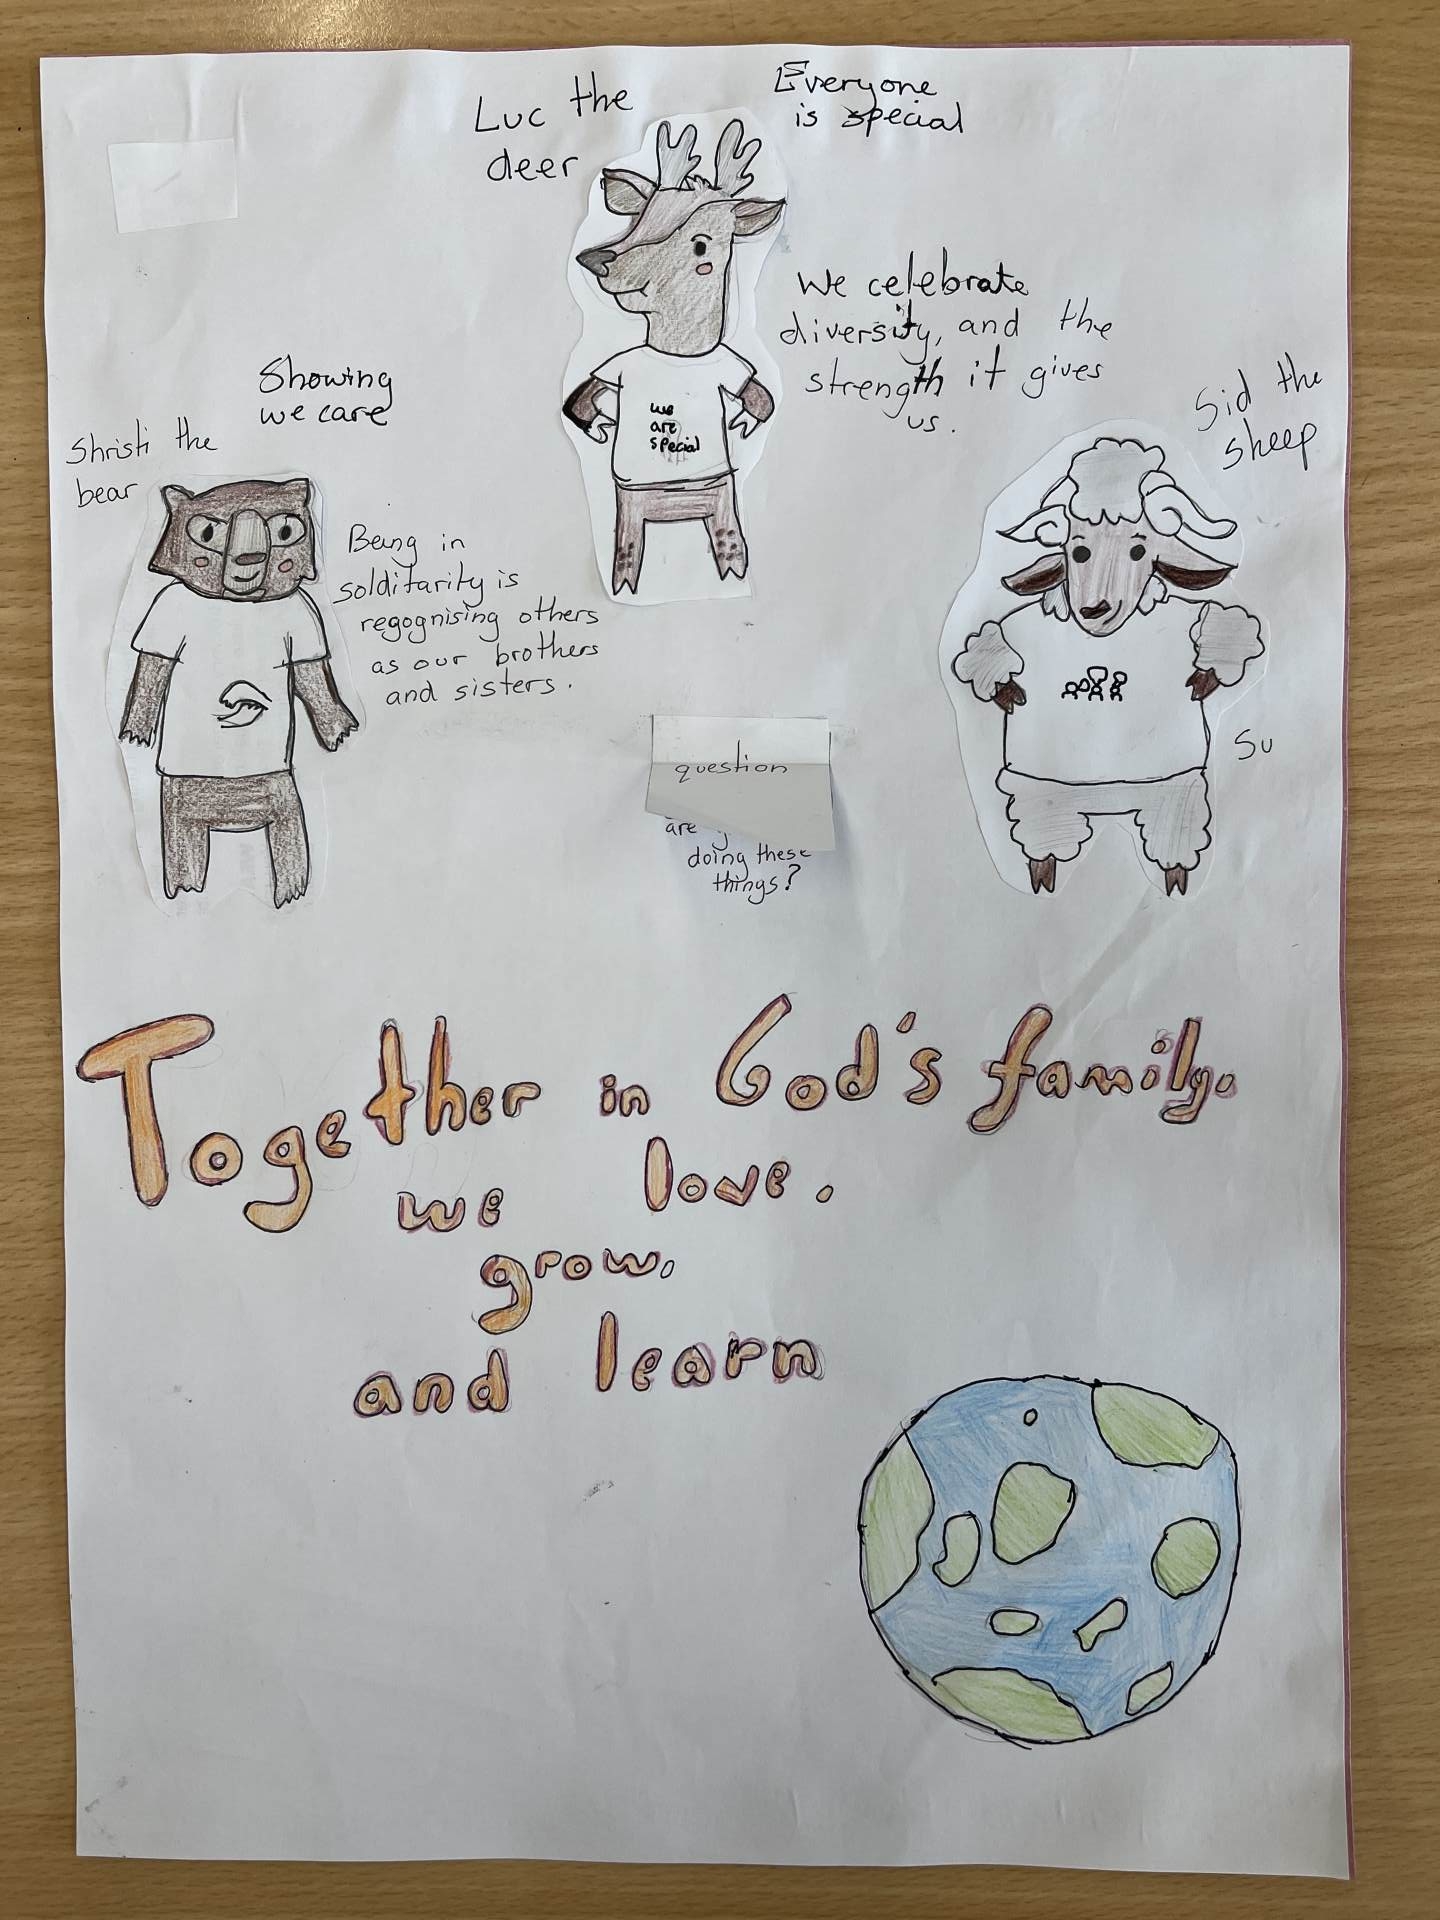 Luc the
deer
Everyone
is special
We celebrate
diversity, and the
strength it gives
us.
we
are
special
Showing
we care
Shristi the
bear
Being in
solditarity is
regognising others
as our brothers
and sisters.
Sid the
sheep
Su
question
are
doing these
things?
Together in God's family.
we love.
grow.
and learn